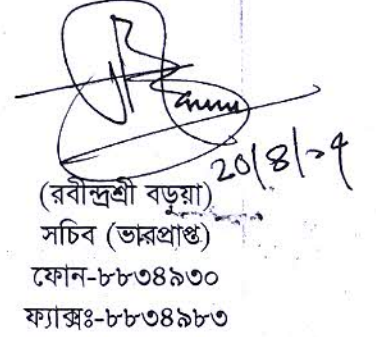 ২০/৪/১৭
(রবীন্দ্রশ্রী বড়ুয়া)
সচিব (ভারপ্রাপ্ত)
ফোন-৮৮৩৪৯৩০
ফ্যাক্সঃ-৮৮৩৪৯৮৩